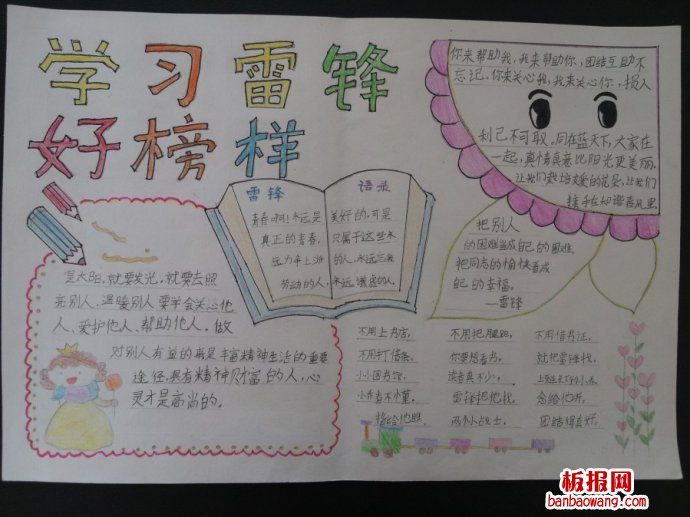 学习雷锋
好榜样
你来帮助我,我来帮助你,团结互助不
忘记。你来关心我,我来关心你,损人
利己不可取。同在蓝天下,大家在
一起,真情真意比阳光更美丽。
让我们栽培友爱的花朵,让我们
携手在和谐春风里
雷锋
青春啊!永远是
真正的青春,
远力争上游
劳动的人,
语录
美好的,可是
只属于这些永
的人,永远忘我
永远谦虚的人。
把别人
的困难当成自己的困难
把同志的愉快看成
自己的幸福。
—雷锋
是太阳,就要发光,就要去照
亮别人、温暖别人要学会关心他
人、爱护他人、帮助他人。做
对别人有益的事是丰富精神生活的重要
途径,具有精神财富的人,心
灵才是高尚的。
不用上书店,
不用打借条,
小小图书馆,
小乔看不懂,
不用把腿跑,
你要想看书,
读者真不少。
雷锋把他找,
两个小战士,
不用借书证,
就把雷锋找。
念给他听,
团结得真好。
板报网
banbaowang.com